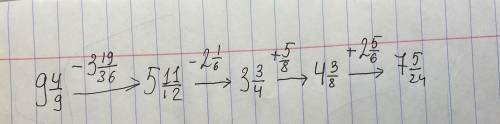 9 4/9 -3 19/36 → 5 11/12 -2 1/6 → 3 3/4 +5/8 → 4 3/8 +2 5/6 → 7 5/24